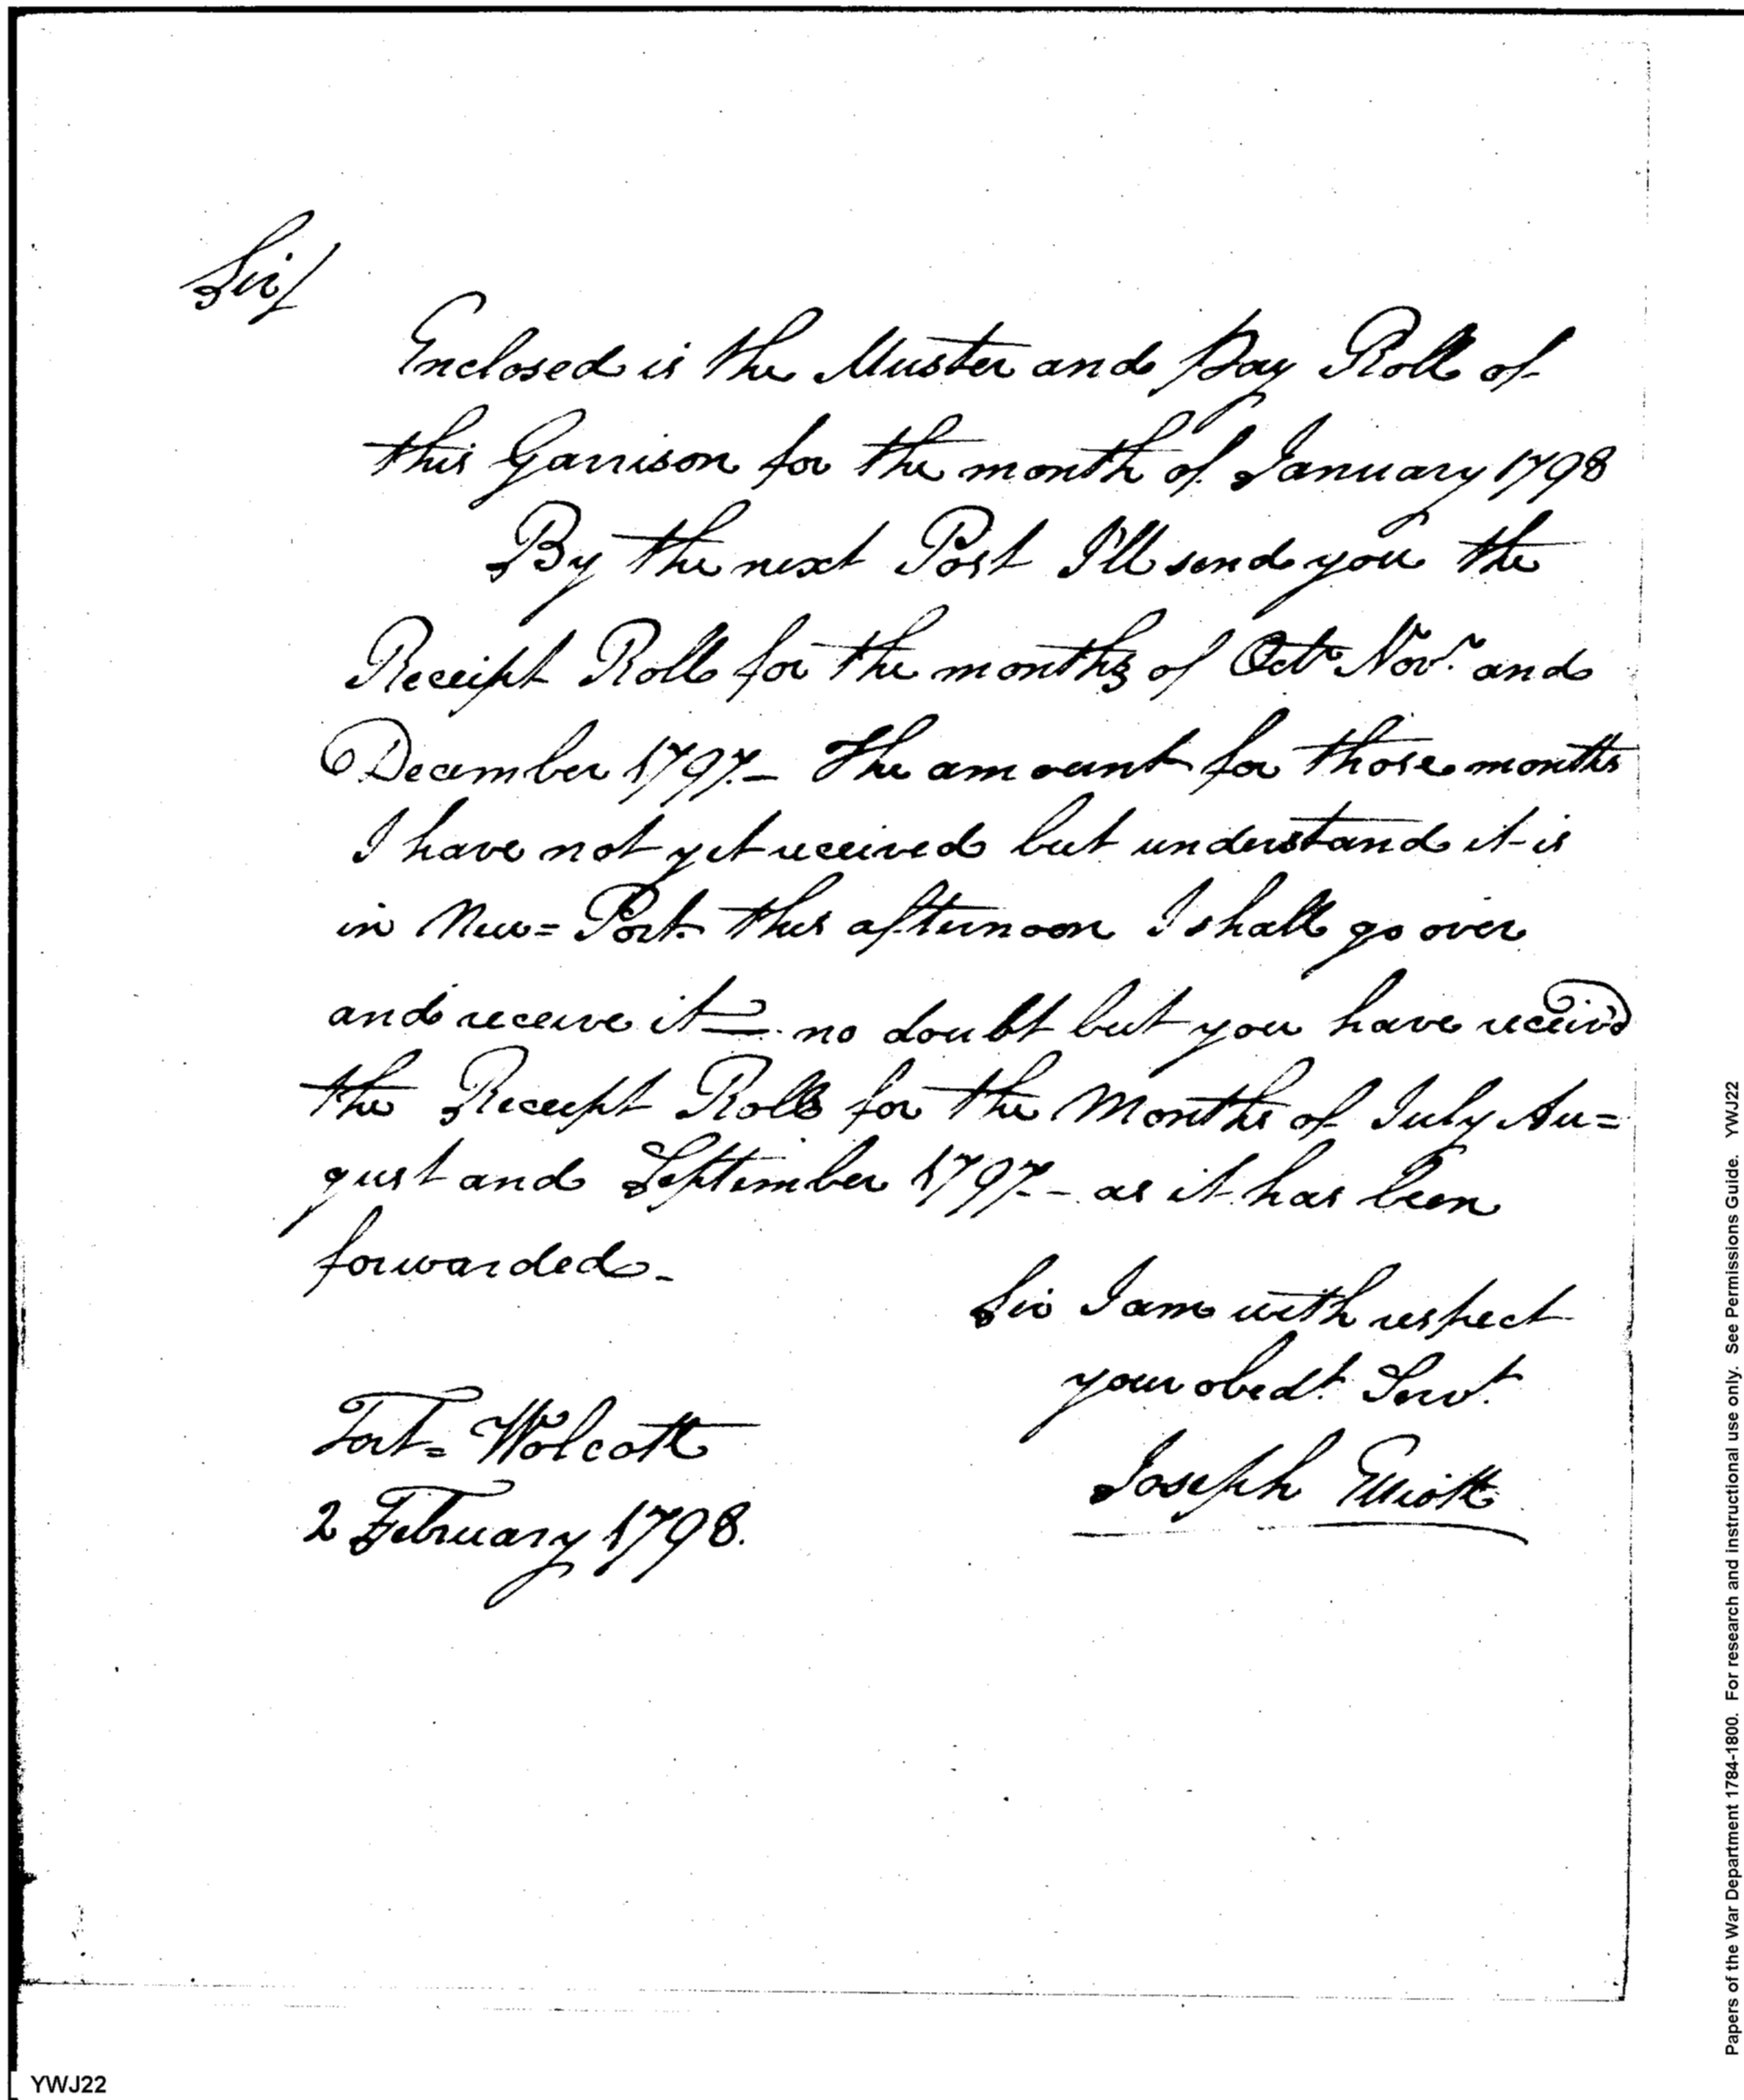 Sir/
Enclosed is the Muster and Pay Roll of
this Garrison for the month of January 1798
By the next Post I'll send you the
Receipt Roll for the months of Octr Novr. and
December 1797.— The amount for those months
I have not yet received but understand it is
in New=Port. this afternoon I shall go over
and receive it — no doubt but you have receiv'd
the Receipt Rolls for the Months of July Au=
gust and September 1797 — as it has been
forwarded —
Sir I am with respect
your obedt. Servt.
Joseph Elliott
Fort= Wolcott
2 February 1798.
Papers of the War Department 1784-1800. For research and instructional use only. See Permissions Guide. YWJ22
YWJ22